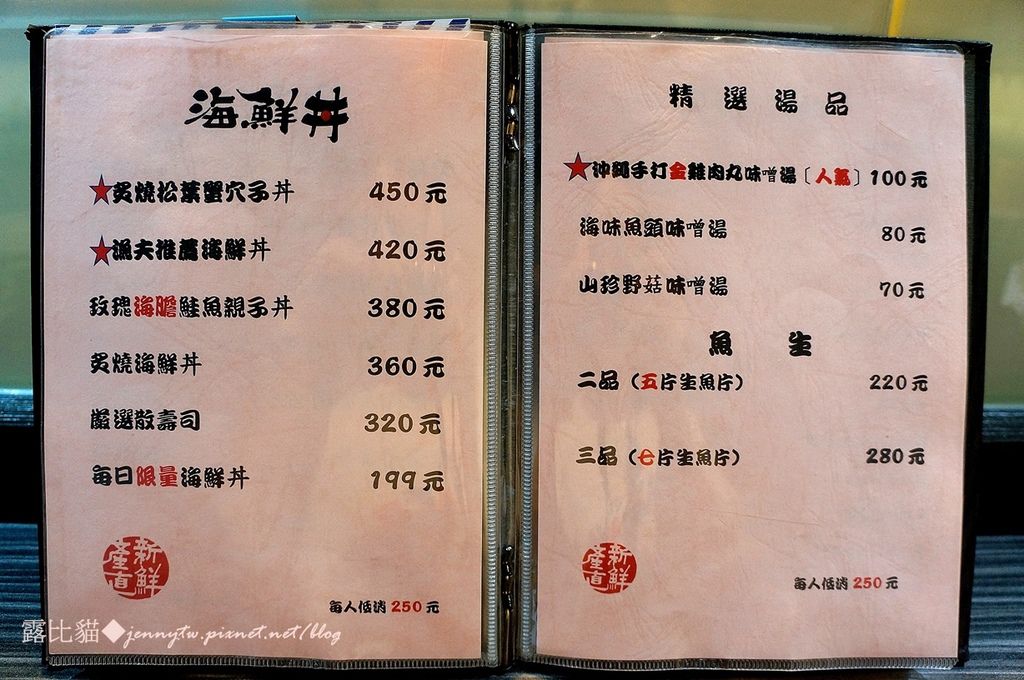 海鮮丼
★炙燒松葉蟹穴子丼 450元
★漁夫推薦海鮮丼 420元
玫瑰海膽鮭魚親子丼 380元
炙燒海鮮丼 360元
嚴選散壽司 320元
每日限量海鮮丼 199元
新鮮
產直
每人低消 250 元
露比貓◆jennytw.pixnet.net/blog
精選湯品
★沖繩手打金雞肉丸味噌湯〔人氣〕100元
海味魚頭味噌湯 80元
山珍野菇味噌湯 70元
魚生
二品（五片生魚片） 220元
三品（七片生魚片） 280元
新鮮
產直
每人低消 250 元